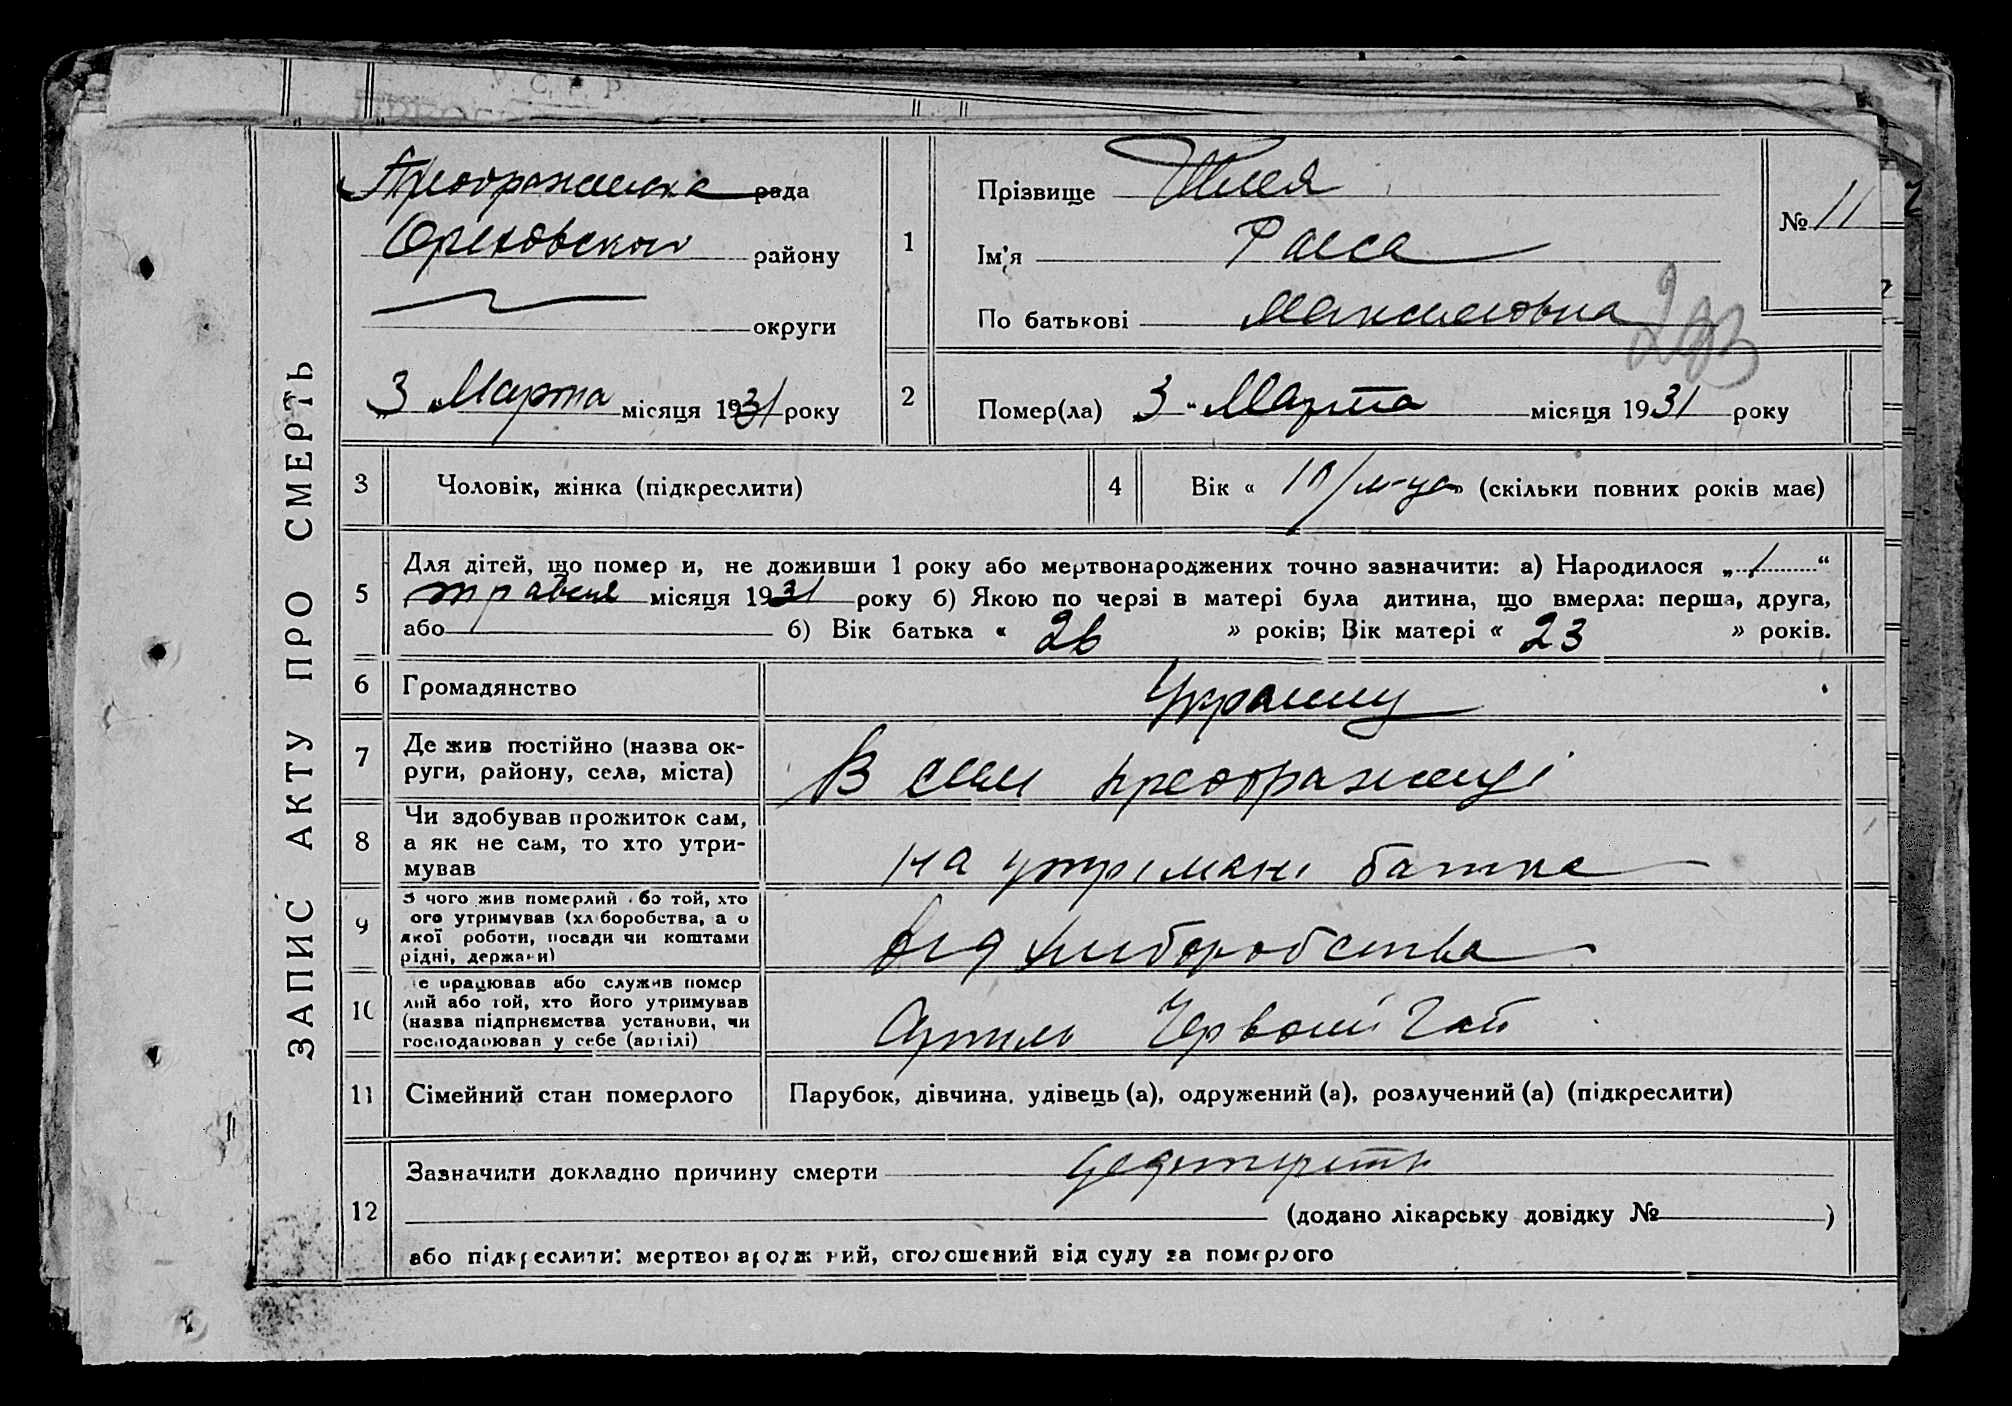 У. С. Р. Р.
ЗАПИС АКТУ ПРО СМЕРТЬ
Преображенська рада
Ореховского району
округи
„3“ Марта місяця 1931 року
1
Прізвище
Ім'я Раиса
По батькові Максимовна
№ 11
293
2
Помер(ла) 3 „Марта місяця 1931 року
3
Чоловік, жінка (підкреслити)
4
Вік « 10/м-це» (скільки повних років має)
5
Для дітей, що помер и, не доживши 1 року або мертвонароджених точно зазначити: а) Народилося „1“
травня місяця 1931 року б) Якою по черзі в матері була дитина, що вмерла: перша, друга,
або б) Вік батька « 26 » років; Вік матері « 23 » років.
6
Громадянство
7
Де жив постійно (назва ок-
руги, району, села, міста)
В селі преображенці
8
Чи здобував прожиток сам,
а як не сам, то хто утри-
мував
на утримані батька
9
З чого жив померлий або той, хто
ого утримував (хліборобства, а о
якої роботи, посади чи коштами
рідні, держави)
від хліборобства
10
е працював або служив помер
лий або той, хто його утримував
(назва підприємства установи, чи
господарював у себе (артілі)
Артиль Червоний Гай
11
Сімейний стан померлого
Парубок, дівчина, удівець (а), одружений (а), розлучений (а) (підкреслити)
12
Зазначити докладно причину смерти
(додано лікарську довідку № )
або підкреслити: мертвонароджений, оголошений від суду за померлого